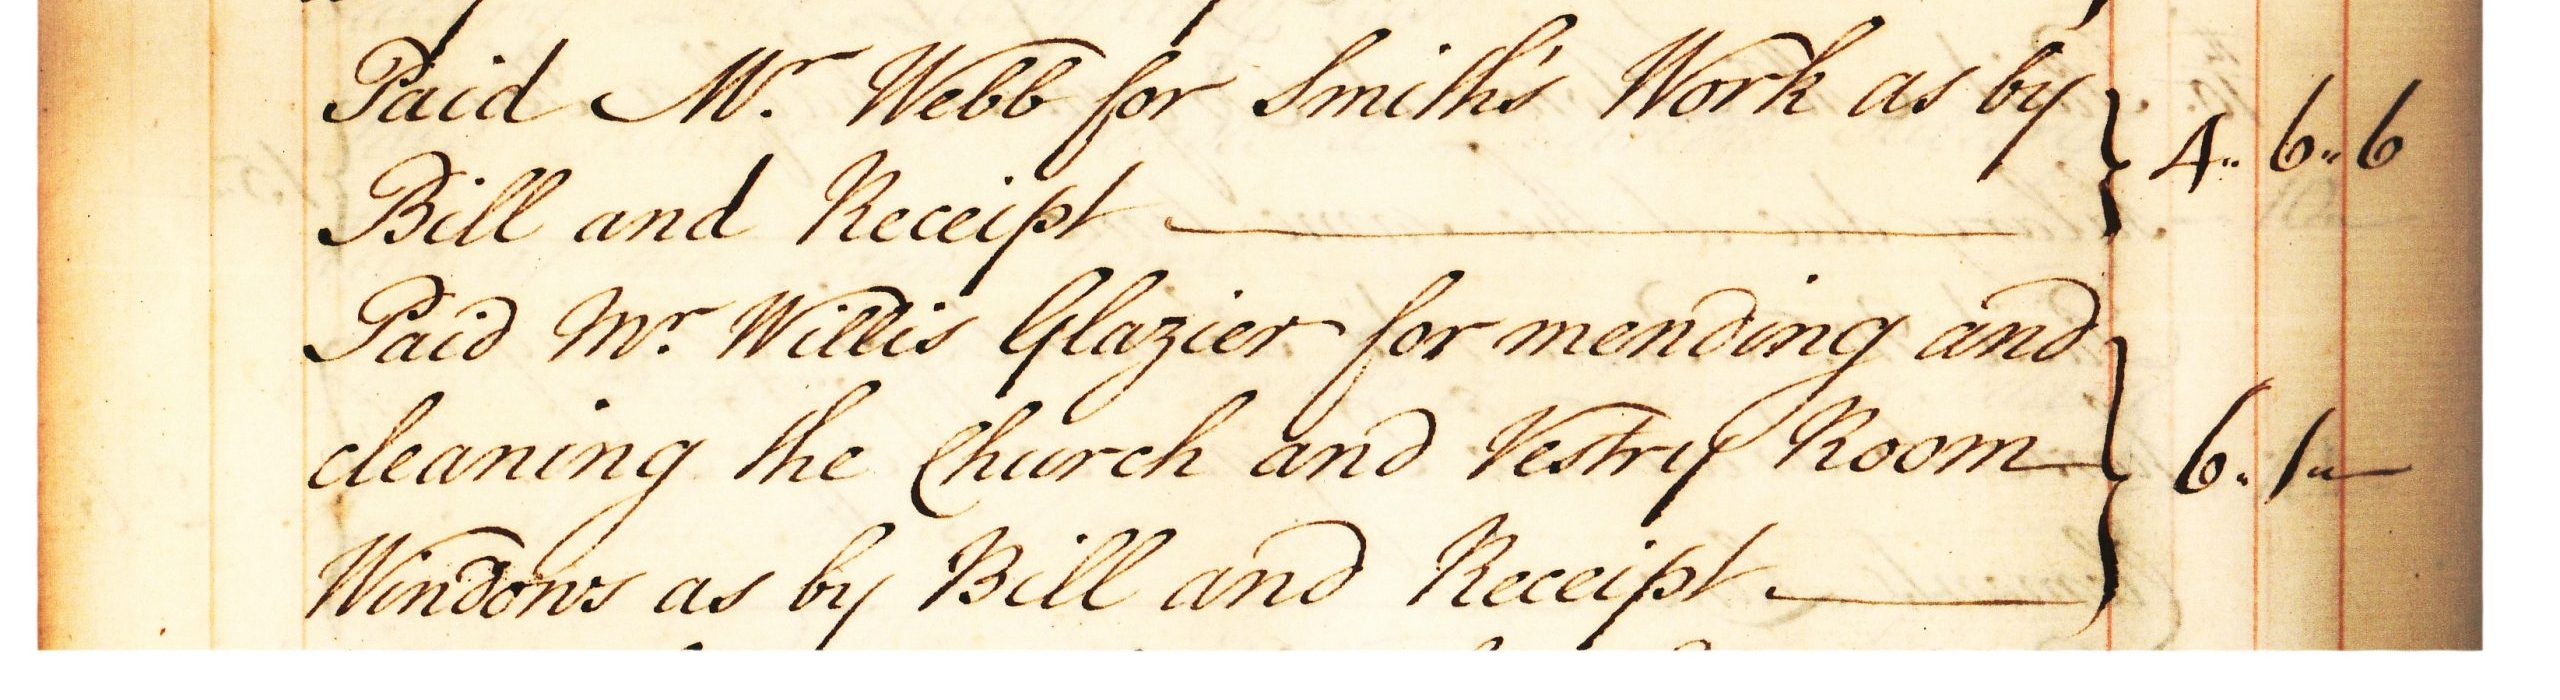 Paid Mr. Webb for Smith's Work as by } 4" 6" 6
Bill and Receipt
Paid Mr. Willis Glazier for mending and
cleaning the Church and Vestry Room } 6" 1" —
Windows as by Bill and Receipt